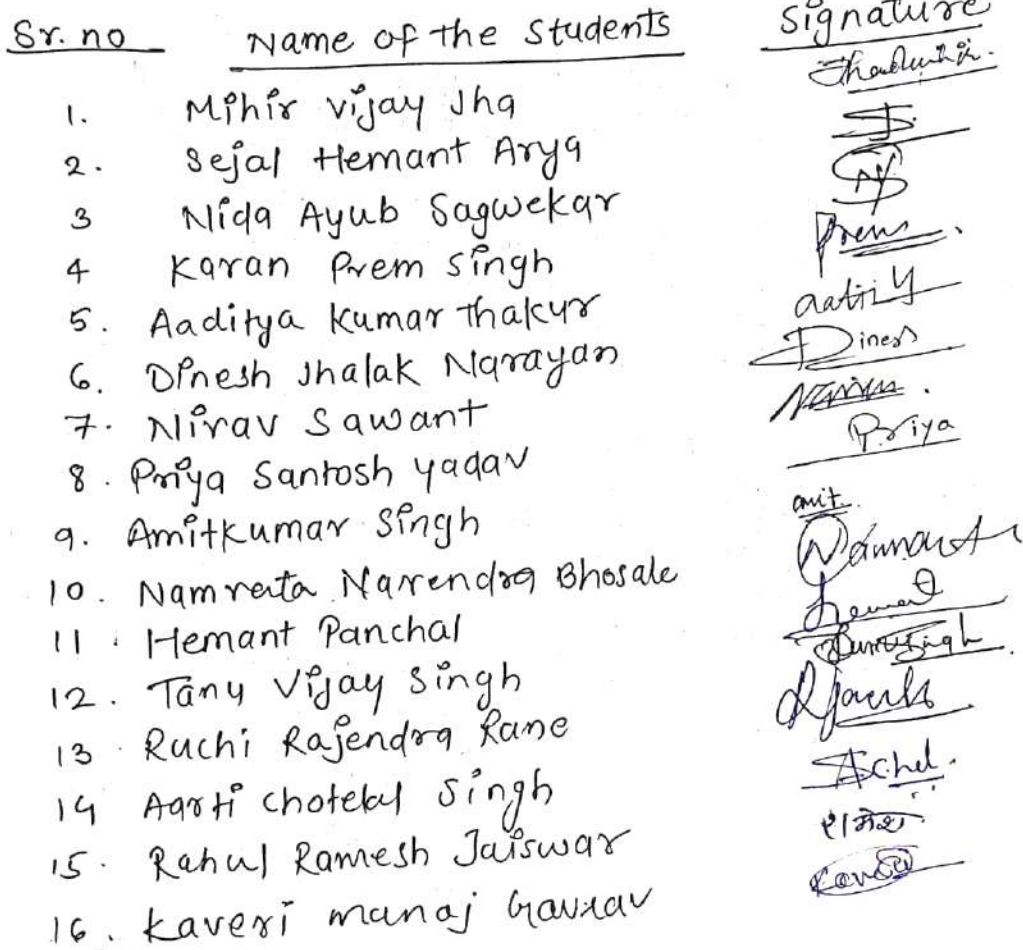 Sr. no Name of the Students Signature
1. Mihir Vijay Jha
2. Sejal Hemant Arya
3 Nida Ayub Sagwekar
4 Karan Prem Singh Prem
5. Aaditya Kumar Thakur
6. Dinesh Jhalak Narayan Dinesh
7. Nirav Sawant
8. Priya Santosh Yadav Priya
9. Amitkumar Singh amit
10. Namrata Narendra Bhosale
11. Hemant Panchal
12. Tanu Vijay Singh
13 Ruchi Rajendra Rane
14 Aarti Chotelal Singh
15. Rahul Ramesh Jaiswar
16. Kaveri manaj Gaurav